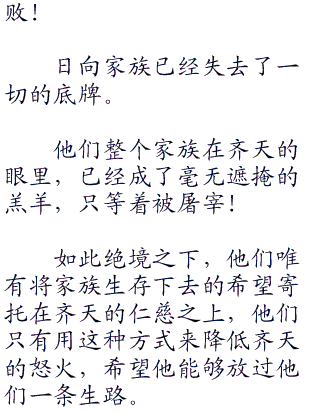 败！
日向家族已经失去了一
切的底牌。
他们整个家族在齐天的
眼里，已经成了毫无遮掩的
羔羊，只等着被屠宰！
如此绝境之下，他们唯
有将家族生存下去的希望寄
托在齐天的仁慈之上，他们
只有用这种方式来降低齐天
的怒火，希望他能够放过他
们一条生路。